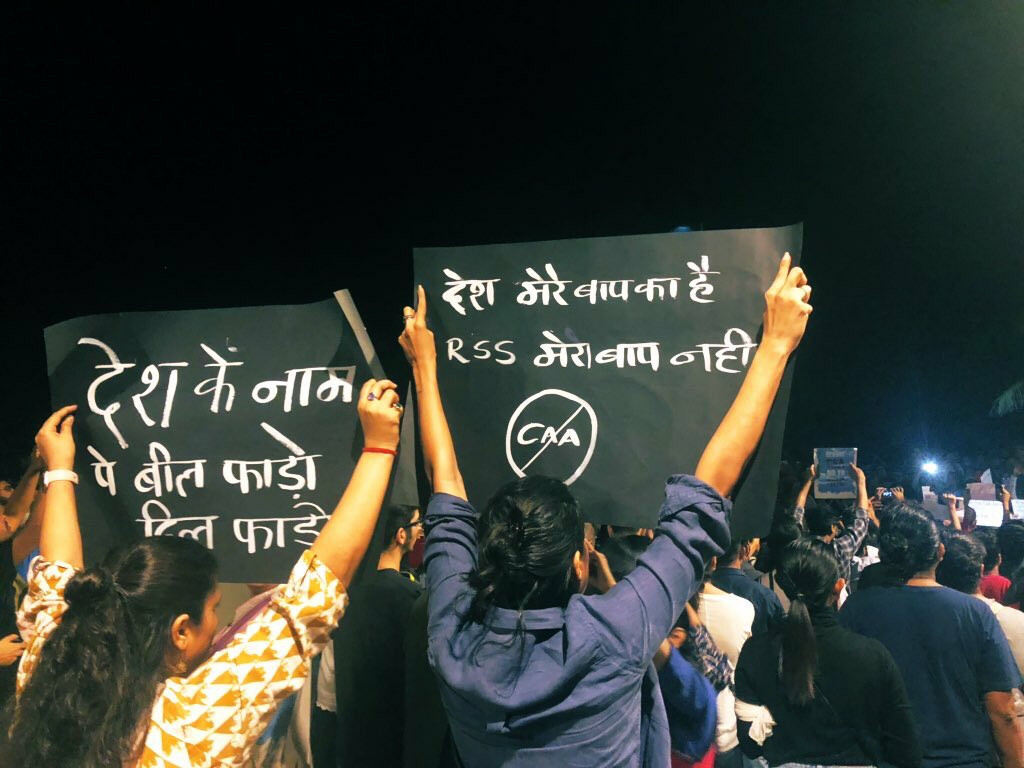 देश कें नाम
पे बील फाड़ो
दिल फाड़ो
देश मेरे बाप का है
RSS मेरा बाप नही
CAA